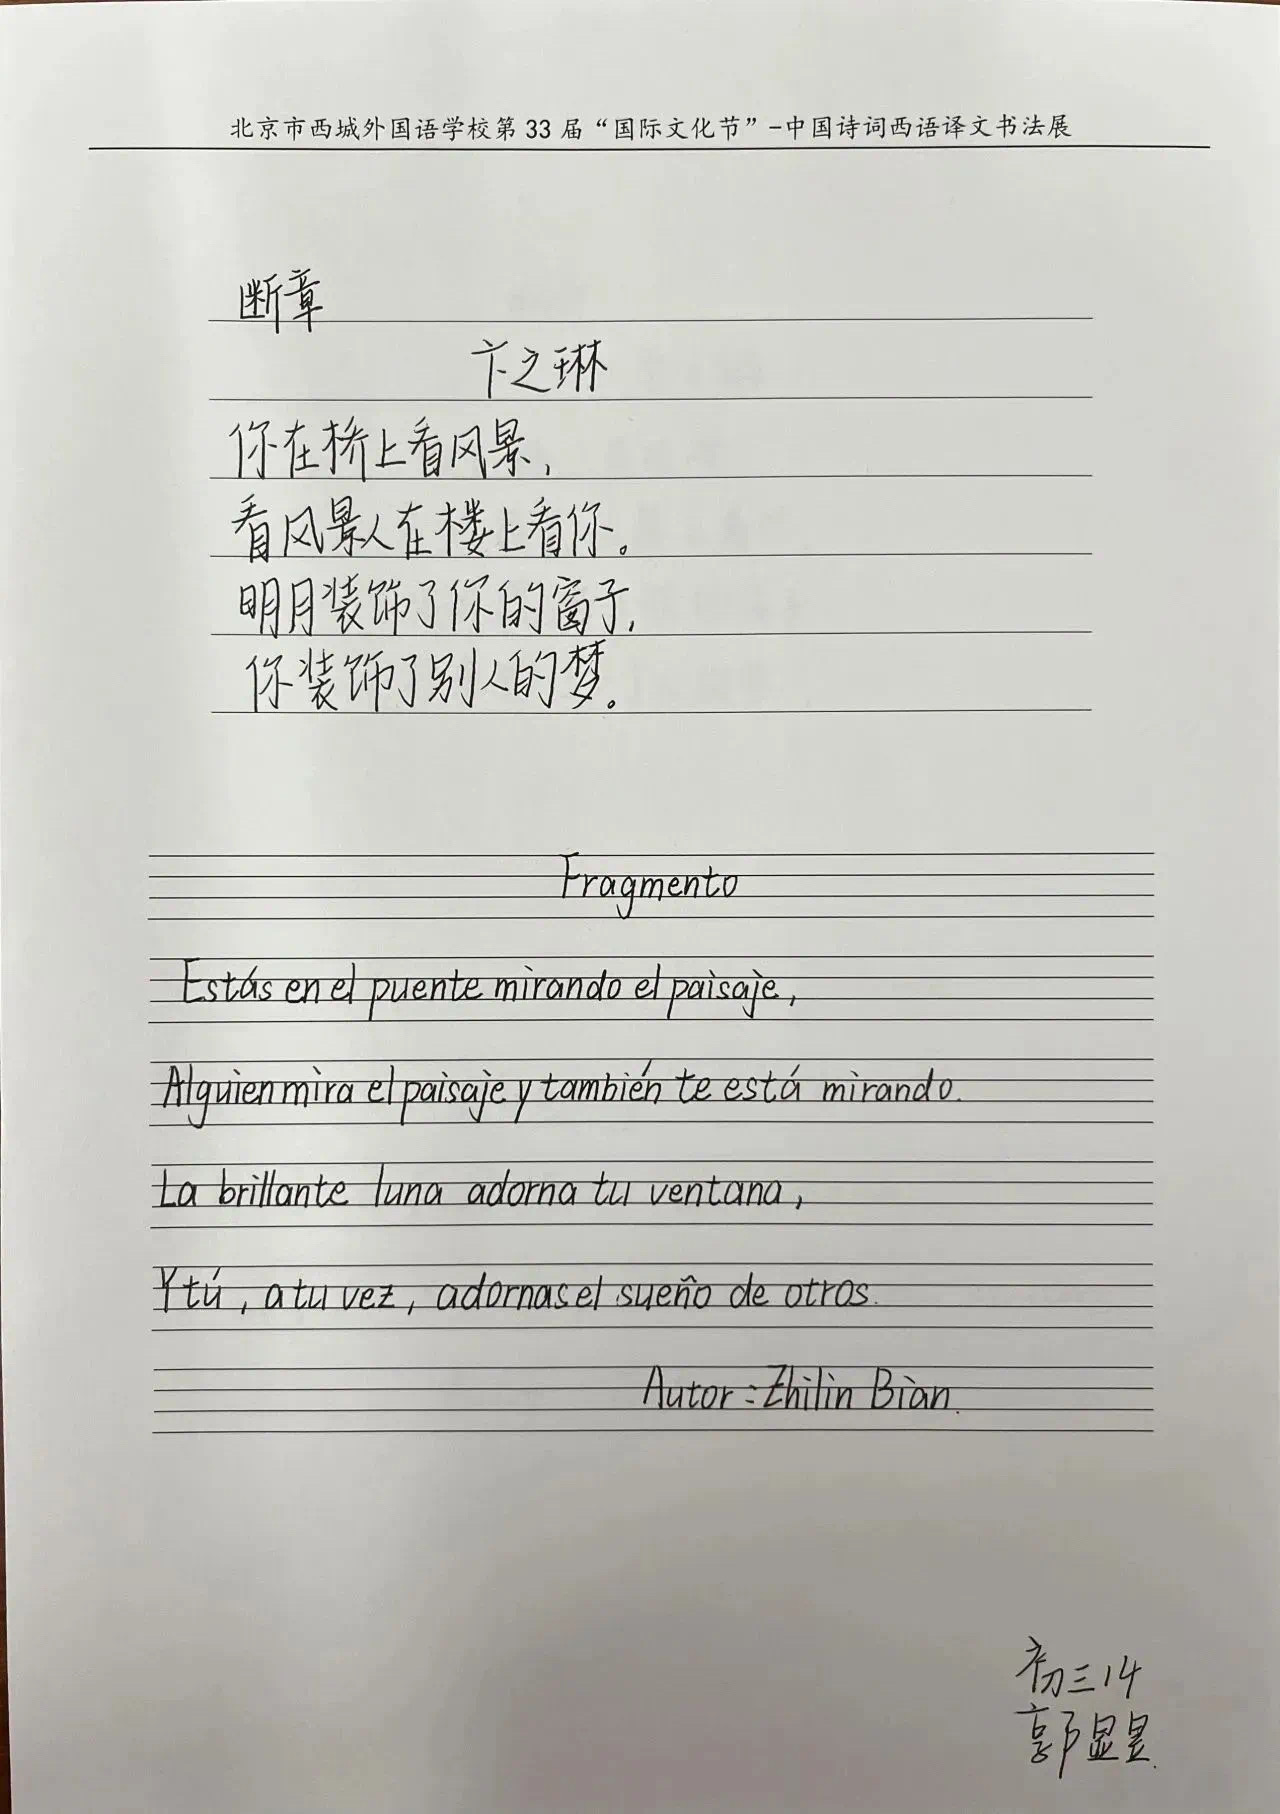 北京市西城外国语学校第 33 届“国际文化节”-中国诗词西语译文书法展
断章
卞之琳
你在桥上看风景，
看风景人在楼上看你。
明月装饰了你的窗子，
你装饰了别人的梦。
Fragmento
Estás en el puente mirando el paisaje,
Alguien mira el paisaje y también te está mirando.
La brillante luna adorna tu ventana,
Y tú, a tu vez, adornas el sueño de otros.
Autor: Zhilin Bian.
初三14
郭显昱.